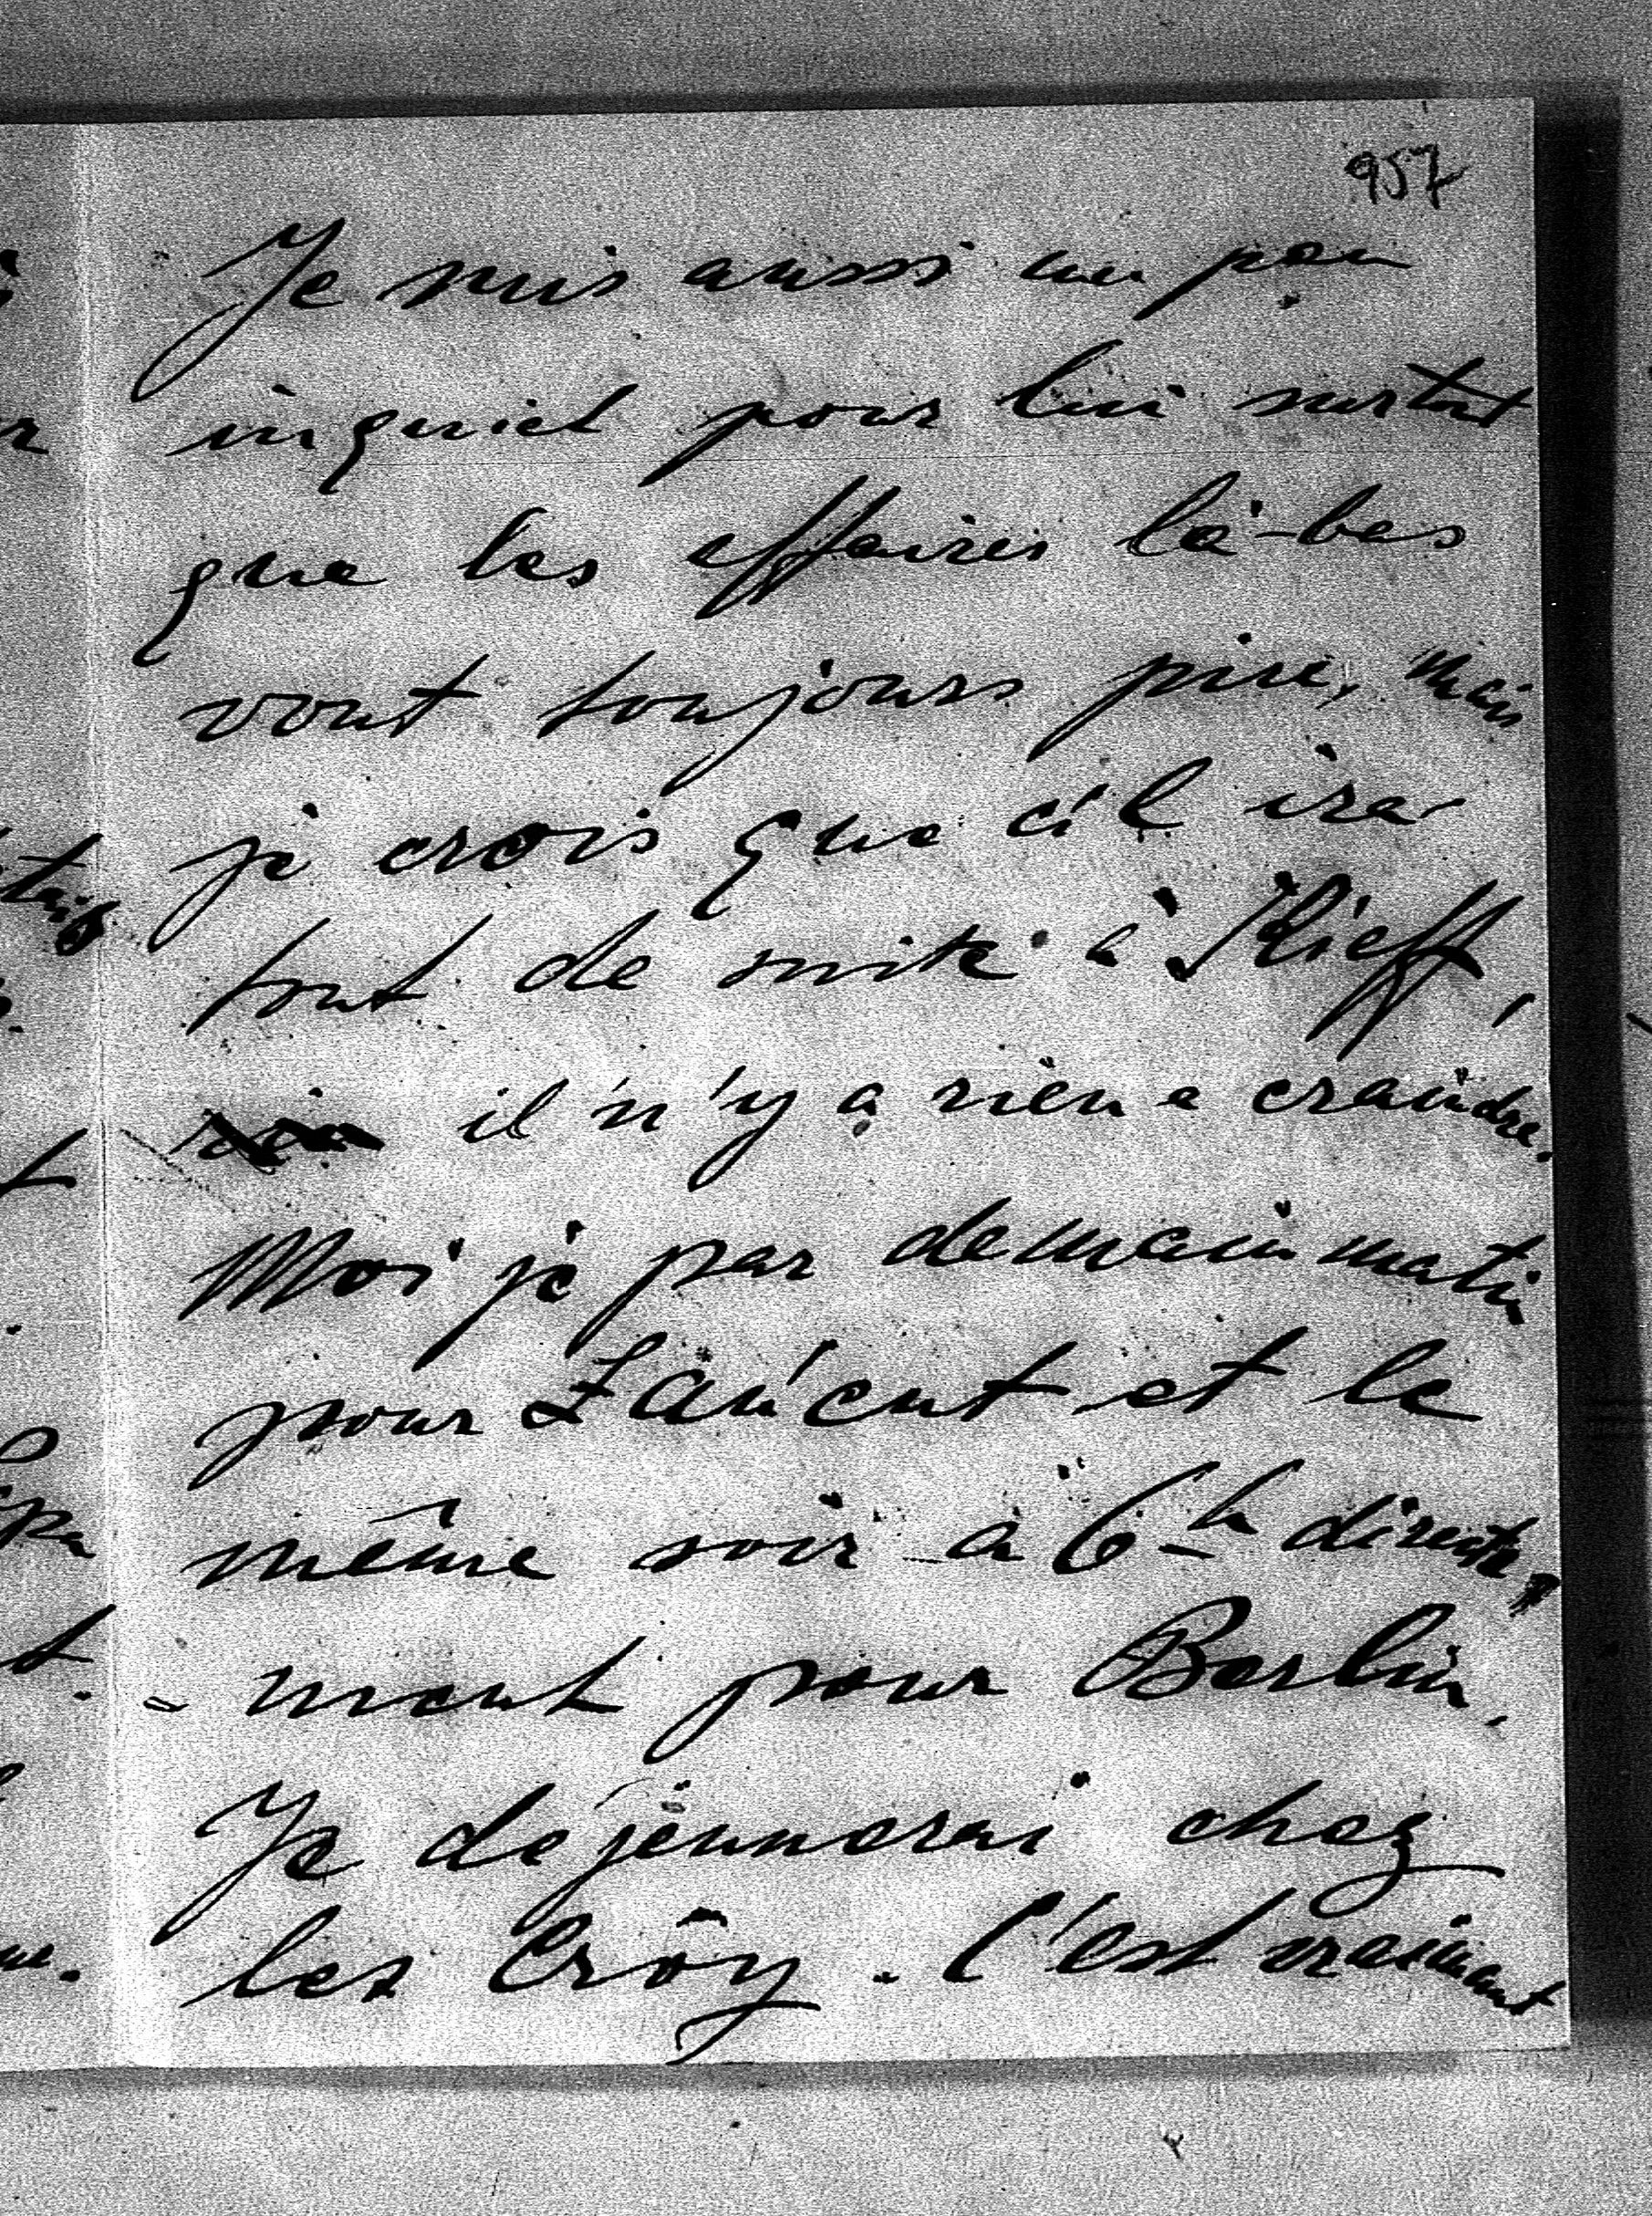 957
Je suis aussi un peu
inquiet pour lui surtout
que les affaires là-bas
vont toujours pire, mais
je crois que s'il ira
tout de suite à Kieff,
il n'y a rien a craindre.
Moi je par demain matin
pour et le
même soir à 6h directe,
- ment pour Berlin.
Je déjeunnerai chez
les Croÿ. C'est vraiment